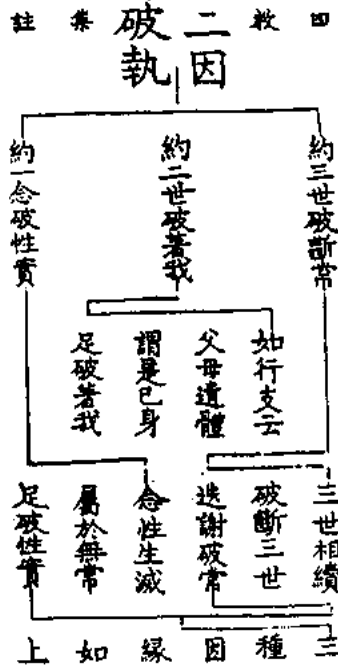 四教集註
二因
破執
約三世破斷常
約二世破著我
約一念破性實
如行支云
父母遺體
謂是己身
足破著我
三世相續
破斷三世
迭謝破常
念性生滅
屬於無常
足破性實
三種因緣如上